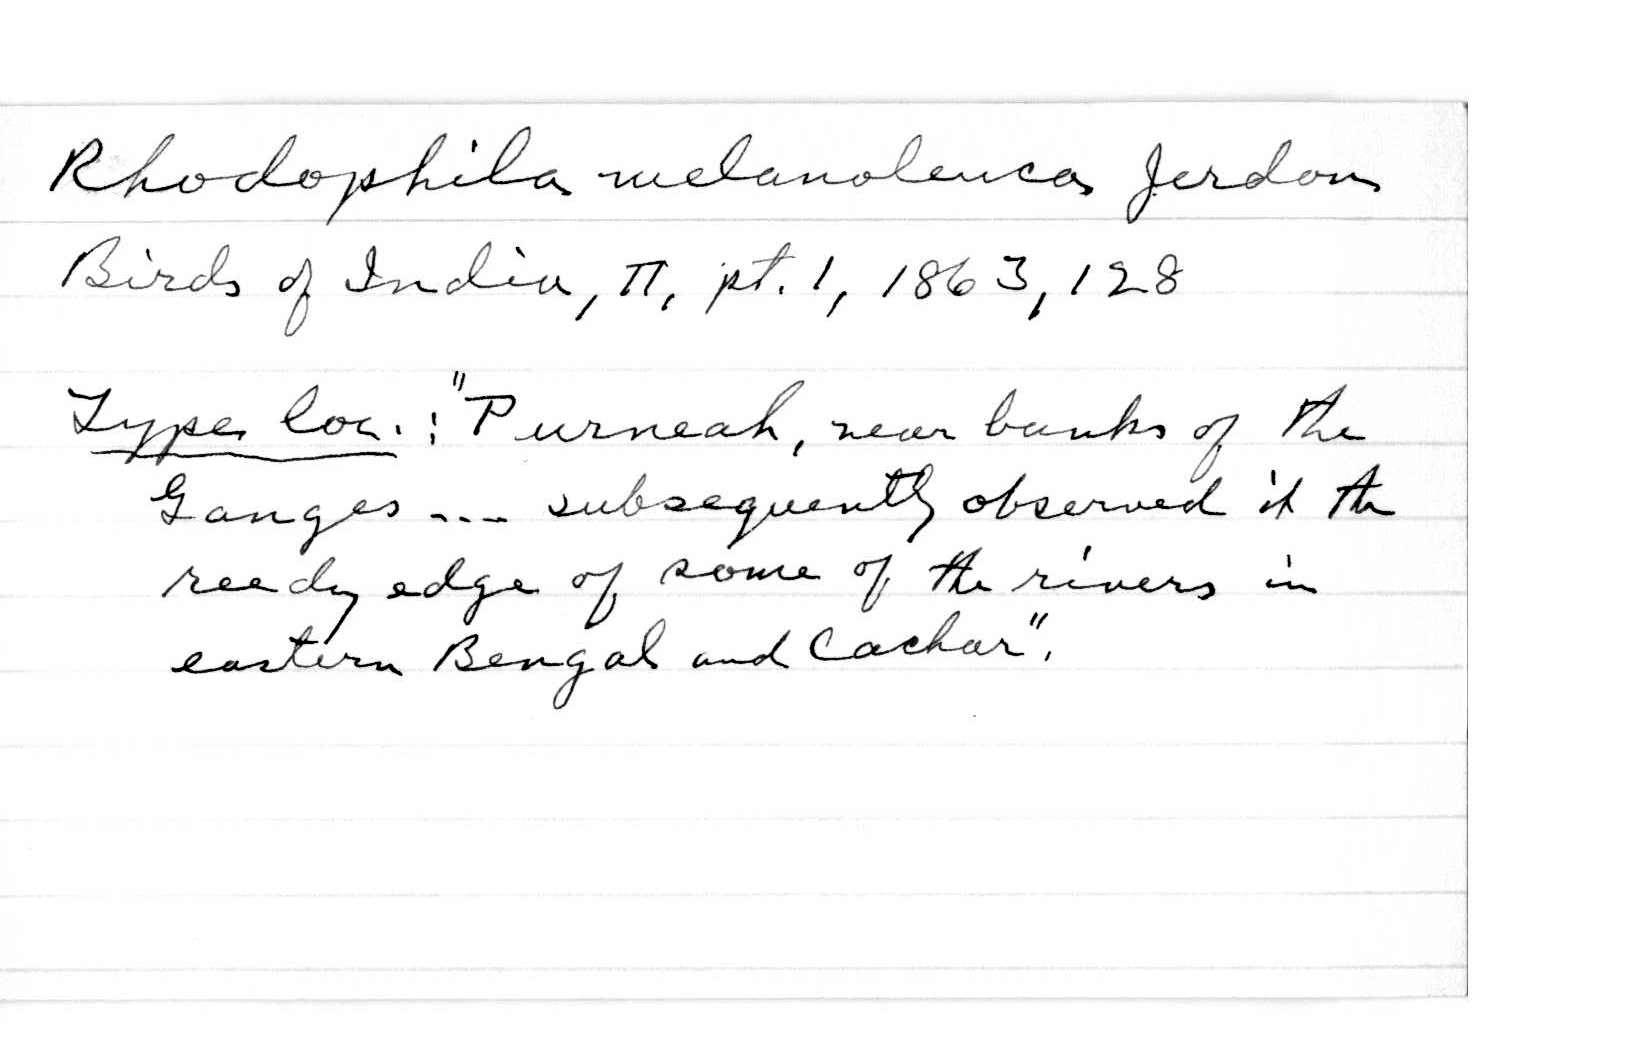 Rhodophila melanoleuca Jerdon
Birds of India, II, pt. 1, 1863, 128
Type loc. : "Purneah, near banks of the
Ganges ---- subsequently observed it the
reedy edge of some of the rivers in
eastern Bengal and Cachar".